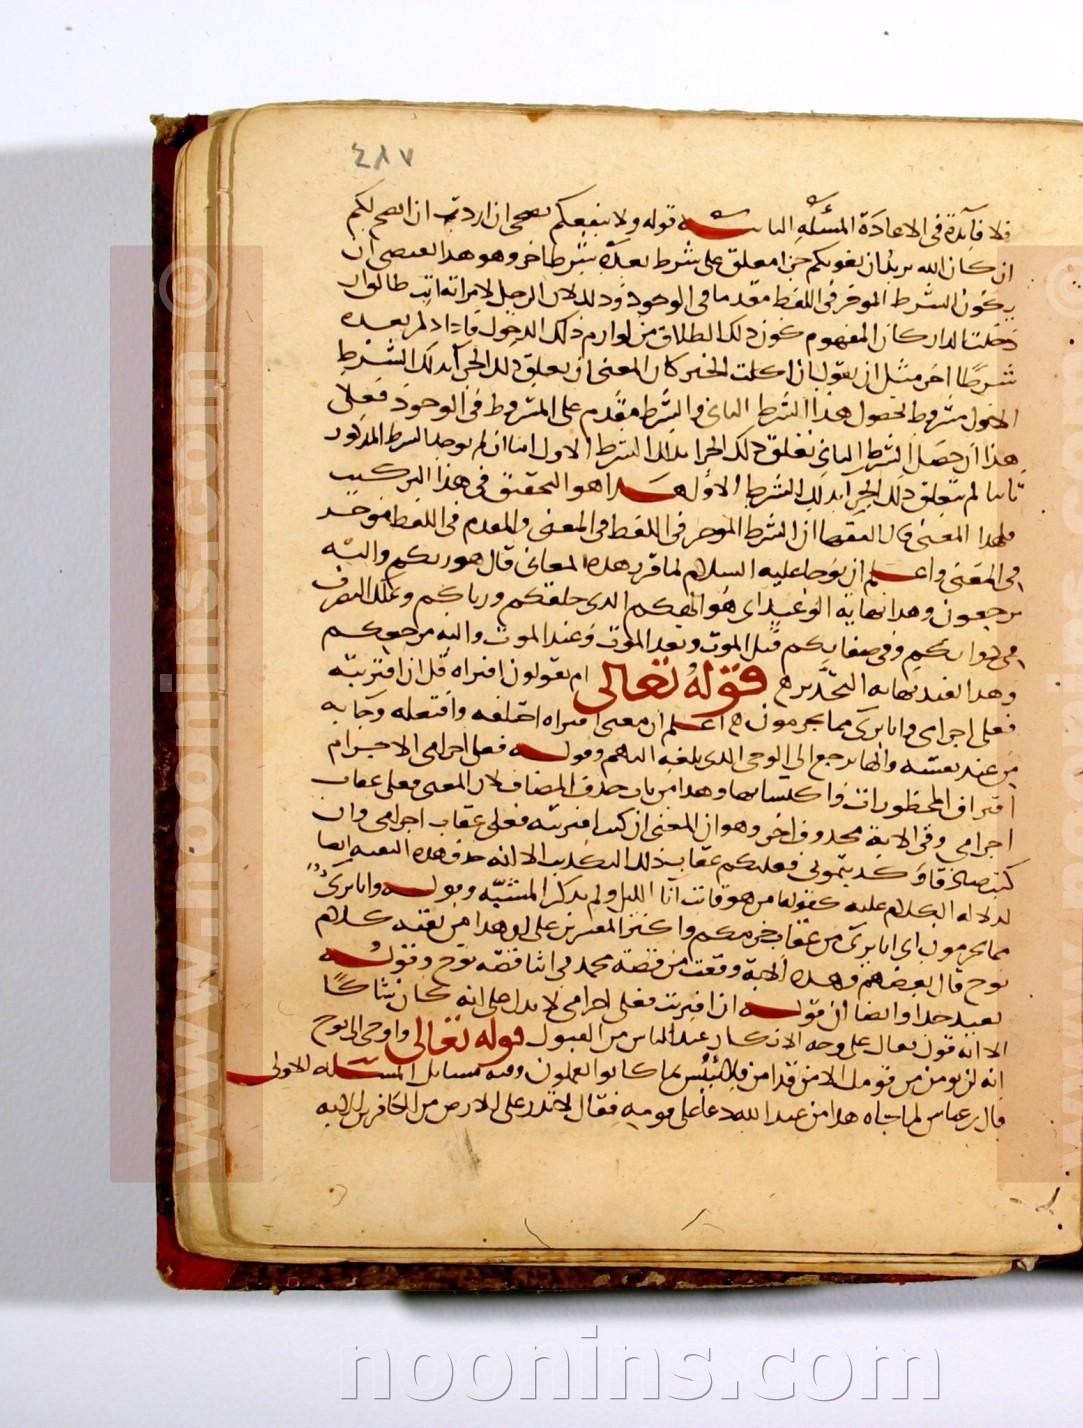 ٤٨٧
فلا فائدة فى الاعادة المسئلة الثالثة قوله ولا ينفعكم نصحى ان اردت ان انصح لكم
ان كان الله يريد ان يغويكم جزا معلق على شرط بعده شرط اخر وهو هذا يقتضى ان
يكون الشرط الموخر فى اللفظ مقدما فى الوجود وذلك لان الرجل اذا قال لامراته انت طالق ان
دخلت الدار كان المفهوم كون ذلك الطلاق من لوازم ذلك الدخول فاذا ذكر بعده
شرطا اخر مثل ان يقول ان اكلت الخبز كان المعنى ان تعلق ذلك الجزآ بذلك الشرط
الاول مشروط بحصول هذا الشرط الثانى والشرط مقدم على المشروط فى الوجود فعلى
هذا ان حصل الشرط الثانى تعلق ذلك الجزا بذلك الشرط الاول اما ان لم يوجد الشرط المذكور
ثانيا لم يتعلق ذلك الجزآ بذلك الشرط الاول هذا هو التحقيق فى هذا التركيب
فلهذا المعنى قال الفقها ان الشرط الموخر فى اللفظ مقدم فى المعنى والمقدم فى اللفظ موخر
فى المعنى واعلم ان نوحا عليه السلام لما قرر هذه المعانى قال هو ربكم واليه
ترجعون وهذا نهاية الوعيد اى هو الهكم الذى خلقكم ورباكم ويملك التصرف
فى ذواتكم وفى صفاتكم قبل الموت وبعد الموت وعند الموت واليه مرجعكم
وهذا يفيد نهاية التحذير قوله تعالى ام يقولون افتراه قل ان افتريته
فعلى اجرامى وانا برى مما تجرمون اعلم ان معنى افتراه اختلقه وافتعله وجآ به
من عند نفسه والها يرجع الى الوحى الذى بلغه اليهم وقوله فعلى اجرامى الاجرام
اقتراف المحظورات واكتسابها وهذا من باب حذف المضاف لان المعنى فعلى عقاب
اجرامى وفى الاية محذوف اخر وهو ان المعنى ان كنت افتريته فعلى عقاب اجرامى وان
كنت صادقا وكذبتمونى فعليكم عقاب ذلك التكذيب الا انه حذف هذه البقية ايضا
لدلالة الكلام عليه كقوله امن هو قانت آنا الليل ولم يذكر المشبه وقوله وانا برى
مما تجرمون اى انا برى من عقاب جرمكم واكثر المفسرين على ان هذا من بقية كلام
نوح قال بعضهم هذه الاية وقعت من قصة محمد فى اثنا قصة نوح وقوله
بعيد جدا وايضا ان قوله ان افتريته فعلى اجرامى لا يدل على انه كان شاكا
الا انه قول يقال على وجه الانكار عند الياس من القبول قوله تعالى واوحى الى نوح
انه لن يومن من قومك الا من قد امن فلا تبتئس بما كانوا يفعلون وفيه مسائل المسئلة الاولى
قال ابن عباس لما جاه هذا من عند الله دعا على قومه فقال لا تذر على الارض من الكافرين
noonins.com
www.noonins.com